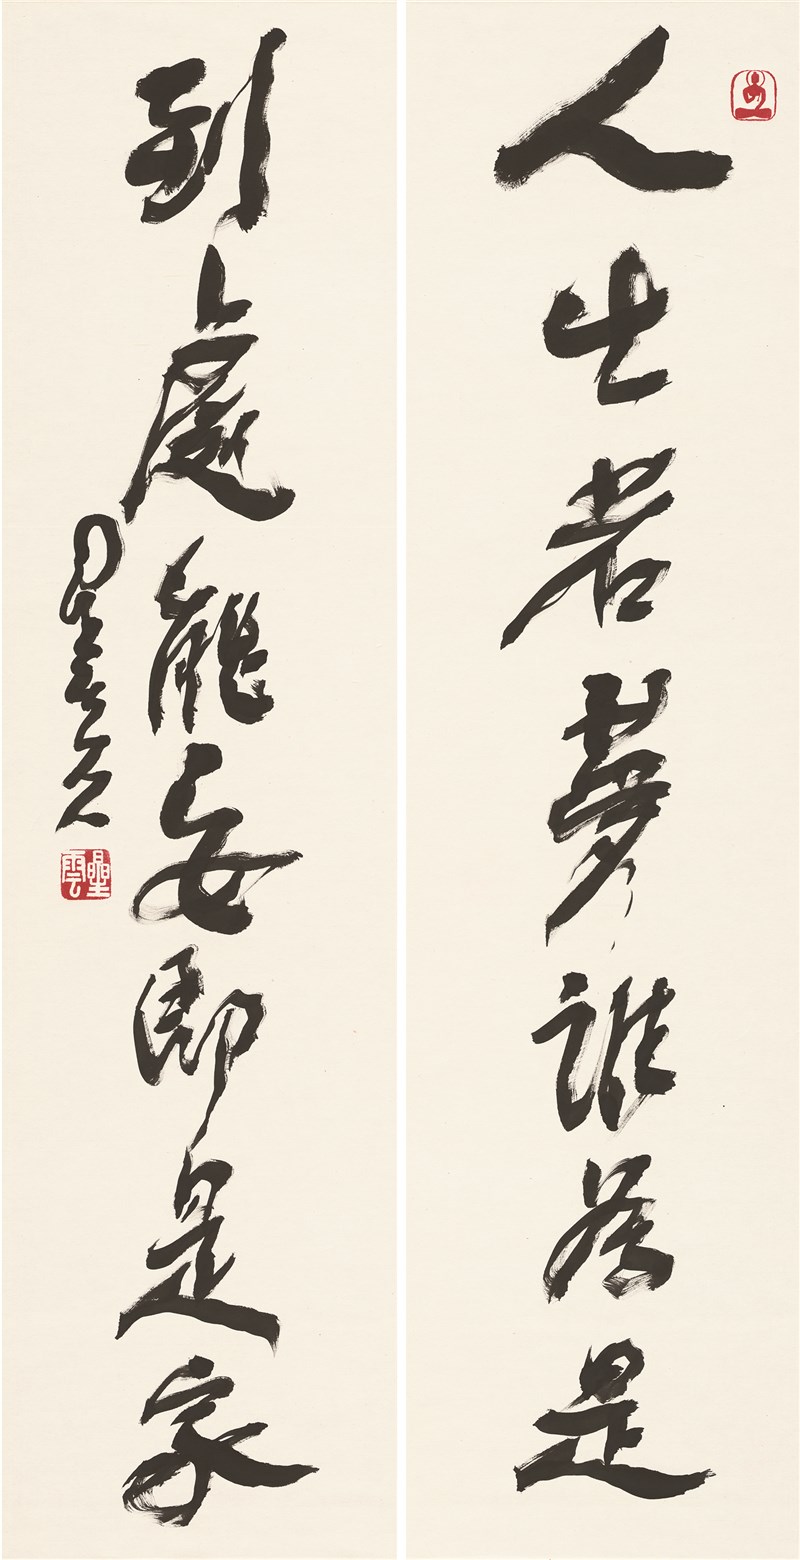 人生若夢誰為是
到處能安即是家
星雲